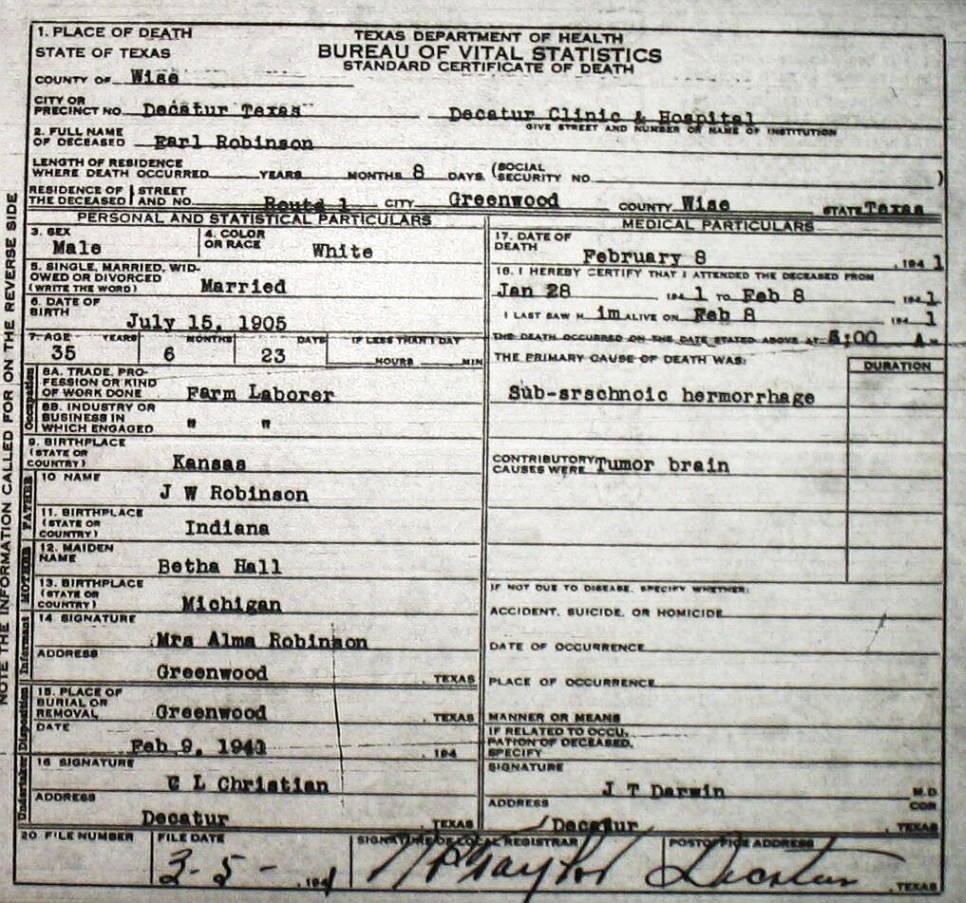 1. PLACE OF DEATH
STATE OF TEXAS
TEXAS DEPARTMENT OF HEALTH
BUREAU OF VITAL STATISTICS
STANDARD CERTIFICATE OF DEATH
COUNTY OF Wise
CITY OR PRECINCT NO. Decatur Texas Decatur Clinic & Hospital
GIVE STREET AND NUMBER OR NAME OF INSTITUTION
2. FULL NAME OF DECEASED Earl Robinson
LENGTH OF RESIDENCE WHERE DEATH OCCURRED YEARS MONTHS 8 DAYS (SOCIAL SECURITY NO. )
RESIDENCE OF THE DECEASED STREET AND NO. Route 1 CITY Greenwood COUNTY Wise STATE Texas
PERSONAL AND STATISTICAL PARTICULARS
3. SEX Male
4. COLOR OR RACE White
5. SINGLE, MARRIED, WIDOWED OR DIVORCED (WRITE THE WORD) Married
6. DATE OF BIRTH July 15, 1905
7. AGE YEARS MONTHS DAYS IF LESS THAN 1 DAY
35 6 23 HOURS MIN
Occupation
8A. TRADE, PROFESSION OR KIND OF WORK DONE Farm Laborer
8B. INDUSTRY OR BUSINESS IN WHICH ENGAGED " "
9. BIRTHPLACE (STATE OR COUNTRY) Kansas
FATHER
10 NAME J W Robinson
11. BIRTHPLACE (STATE OR COUNTRY) Indiana
MOTHER
12. MAIDEN NAME Betha Hall
13. BIRTHPLACE (STATE OR COUNTRY) Michigan
Informant
14 SIGNATURE Mrs Alma Robinson
ADDRESS Greenwood , TEXAS
Disposition
15. PLACE OF BURIAL OR REMOVAL, Greenwood , TEXAS
DATE Feb 9, 1941 , 194
Undertaker
16 SIGNATURE C L Christian
ADDRESS Decatur , TEXAS
MEDICAL PARTICULARS
17. DATE OF DEATH February 8 , 194 1
18. I HEREBY CERTIFY THAT I ATTENDED THE DECEASED FROM
Jan 28 , 194 1 TO Feb 8 , 194 1
I LAST SAW H im ALIVE ON Feb 8 , 194 1
THE DEATH OCCURRED ON THE DATE STATED ABOVE AT 5:00 A M
THE PRIMARY CAUSE OF DEATH WAS: DURATION
Sub-srschnoic hermorrhage
CONTRIBUTORY CAUSES WERE Tumor brain
IF NOT DUE TO DISEASE, SPECIFY WHETHER:
ACCIDENT, SUICIDE, OR HOMICIDE
DATE OF OCCURRENCE
PLACE OF OCCURRENCE
MANNER OR MEANS
IF RELATED TO OCCUPATION OF DECEASED, SPECIFY
SIGNATURE J T Darwin M.D.
ADDRESS COR
Decatur , TEXAS
20. FILE NUMBER
FILE DATE 3-5- , 1941
SIGNATURE OF LOCAL REGISTRAR
POSTOFFICE ADDRESS Decatur , TEXAS
NOTE THE INFORMATION CALLED FOR ON THE REVERSE SIDE